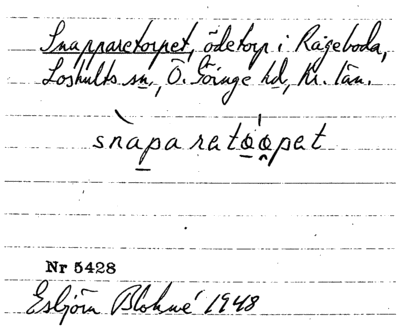 Snapparetorpet, ödetorp i Rågeboda,
Loshults sn., Ö. Göinge hd, Kr. län.
snaparatoopet
Nr 5428
Esbjörn Blohmé 1948